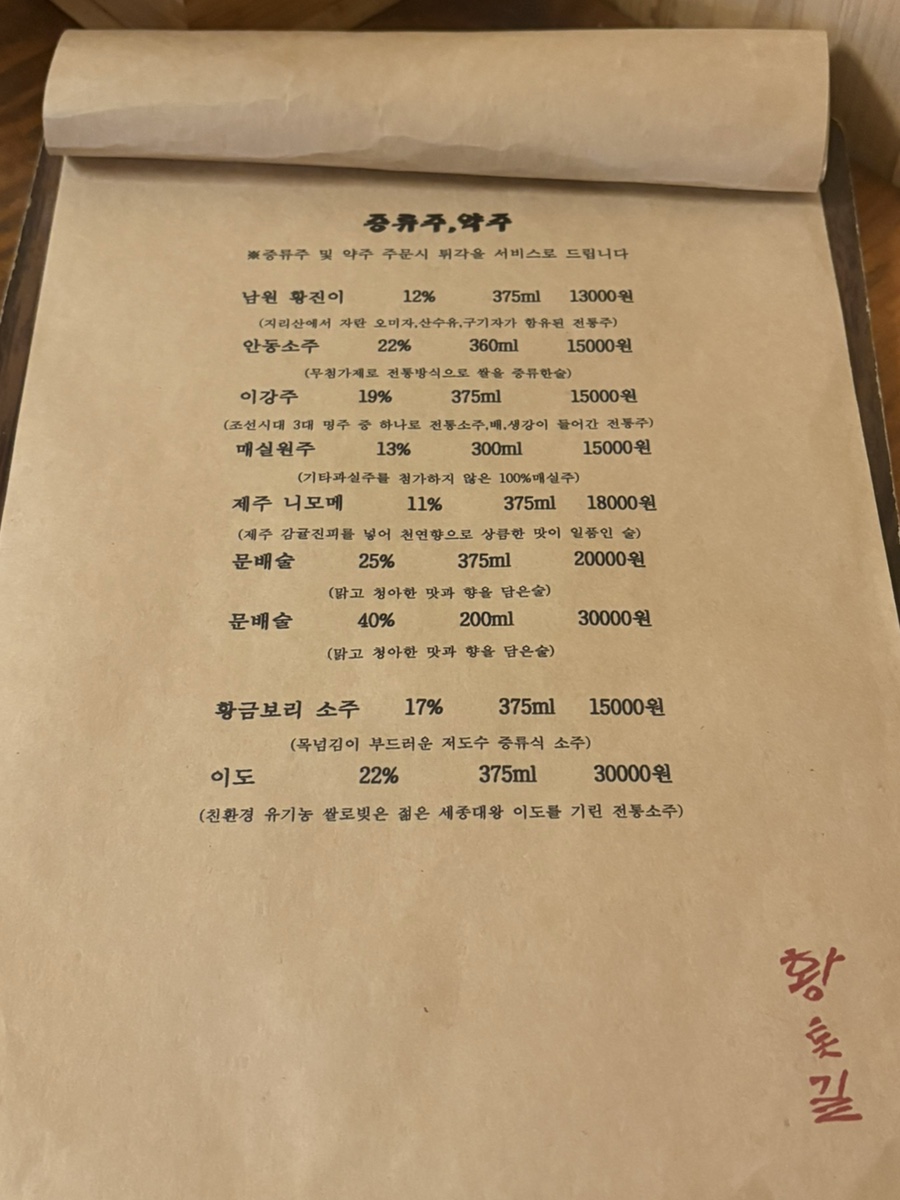 증류주,약주
※증류주 및 약주 주문시 튀각을 서비스로 드립니다
남원 황진이 12% 375ml 13000원
(지리산에서 자란 오미자,산수유,구기자가 함유된 전통주)
안동소주 22% 360ml 15000원
(무첨가제로 전통방식으로 쌀을 증류한술)
이강주 19% 375ml 15000원
(조선시대 3대 명주 중 하나로 전통소주,배,생강이 들어간 전통주)
매실원주 13% 300ml 15000원
(기타과실주를 첨가하지 않은 100%매실주)
제주 니모메 11% 375ml 18000원
(제주 감귤진피를 넣어 천연향으로 상큼한 맛이 일품인 술)
문배술 25% 375ml 20000원
(맑고 청아한 맛과 향을 담은술)
문배술 40% 200ml 30000원
(맑고 청아한 맛과 향을 담은술)
황금보리 소주 17% 375ml 15000원
(목넘김이 부드러운 저도수 증류식 소주)
이도 22% 375ml 30000원
(친환경 유기농 쌀로빚은 젊은 세종대왕 이도를 기린 전통소주)
황
톳
길